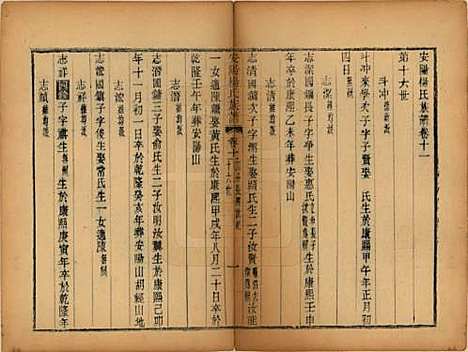 安陽楊氏族譜卷十一
第十六世
斗冲
斗冲來學次子字聲賢娶 氏生於康熙甲午年正月初
四日
志深
志深國瑞長子字爭生娶惠氏
生於康熙壬申
年卒於康熙乙未年葬安陽山
志清
志清國瑞次子字渭生娶顧氏生二子汝賢
一女適陳娶黃氏生於康熙甲戌年八月二十日卒於
乾隆壬午年葬安陽山
安陽楊氏族譜 卷十一
志濬
志濬國鏞三子娶俞氏生二子生於康熙己卯
年十一月初一日卒於乾隆癸亥年葬安陽山胡經山地
志澄
志澄 子字俊生娶常氏生一女適陳
志祥
志祥 子字麟生生於康熙庚寅年卒於乾隆
志斌